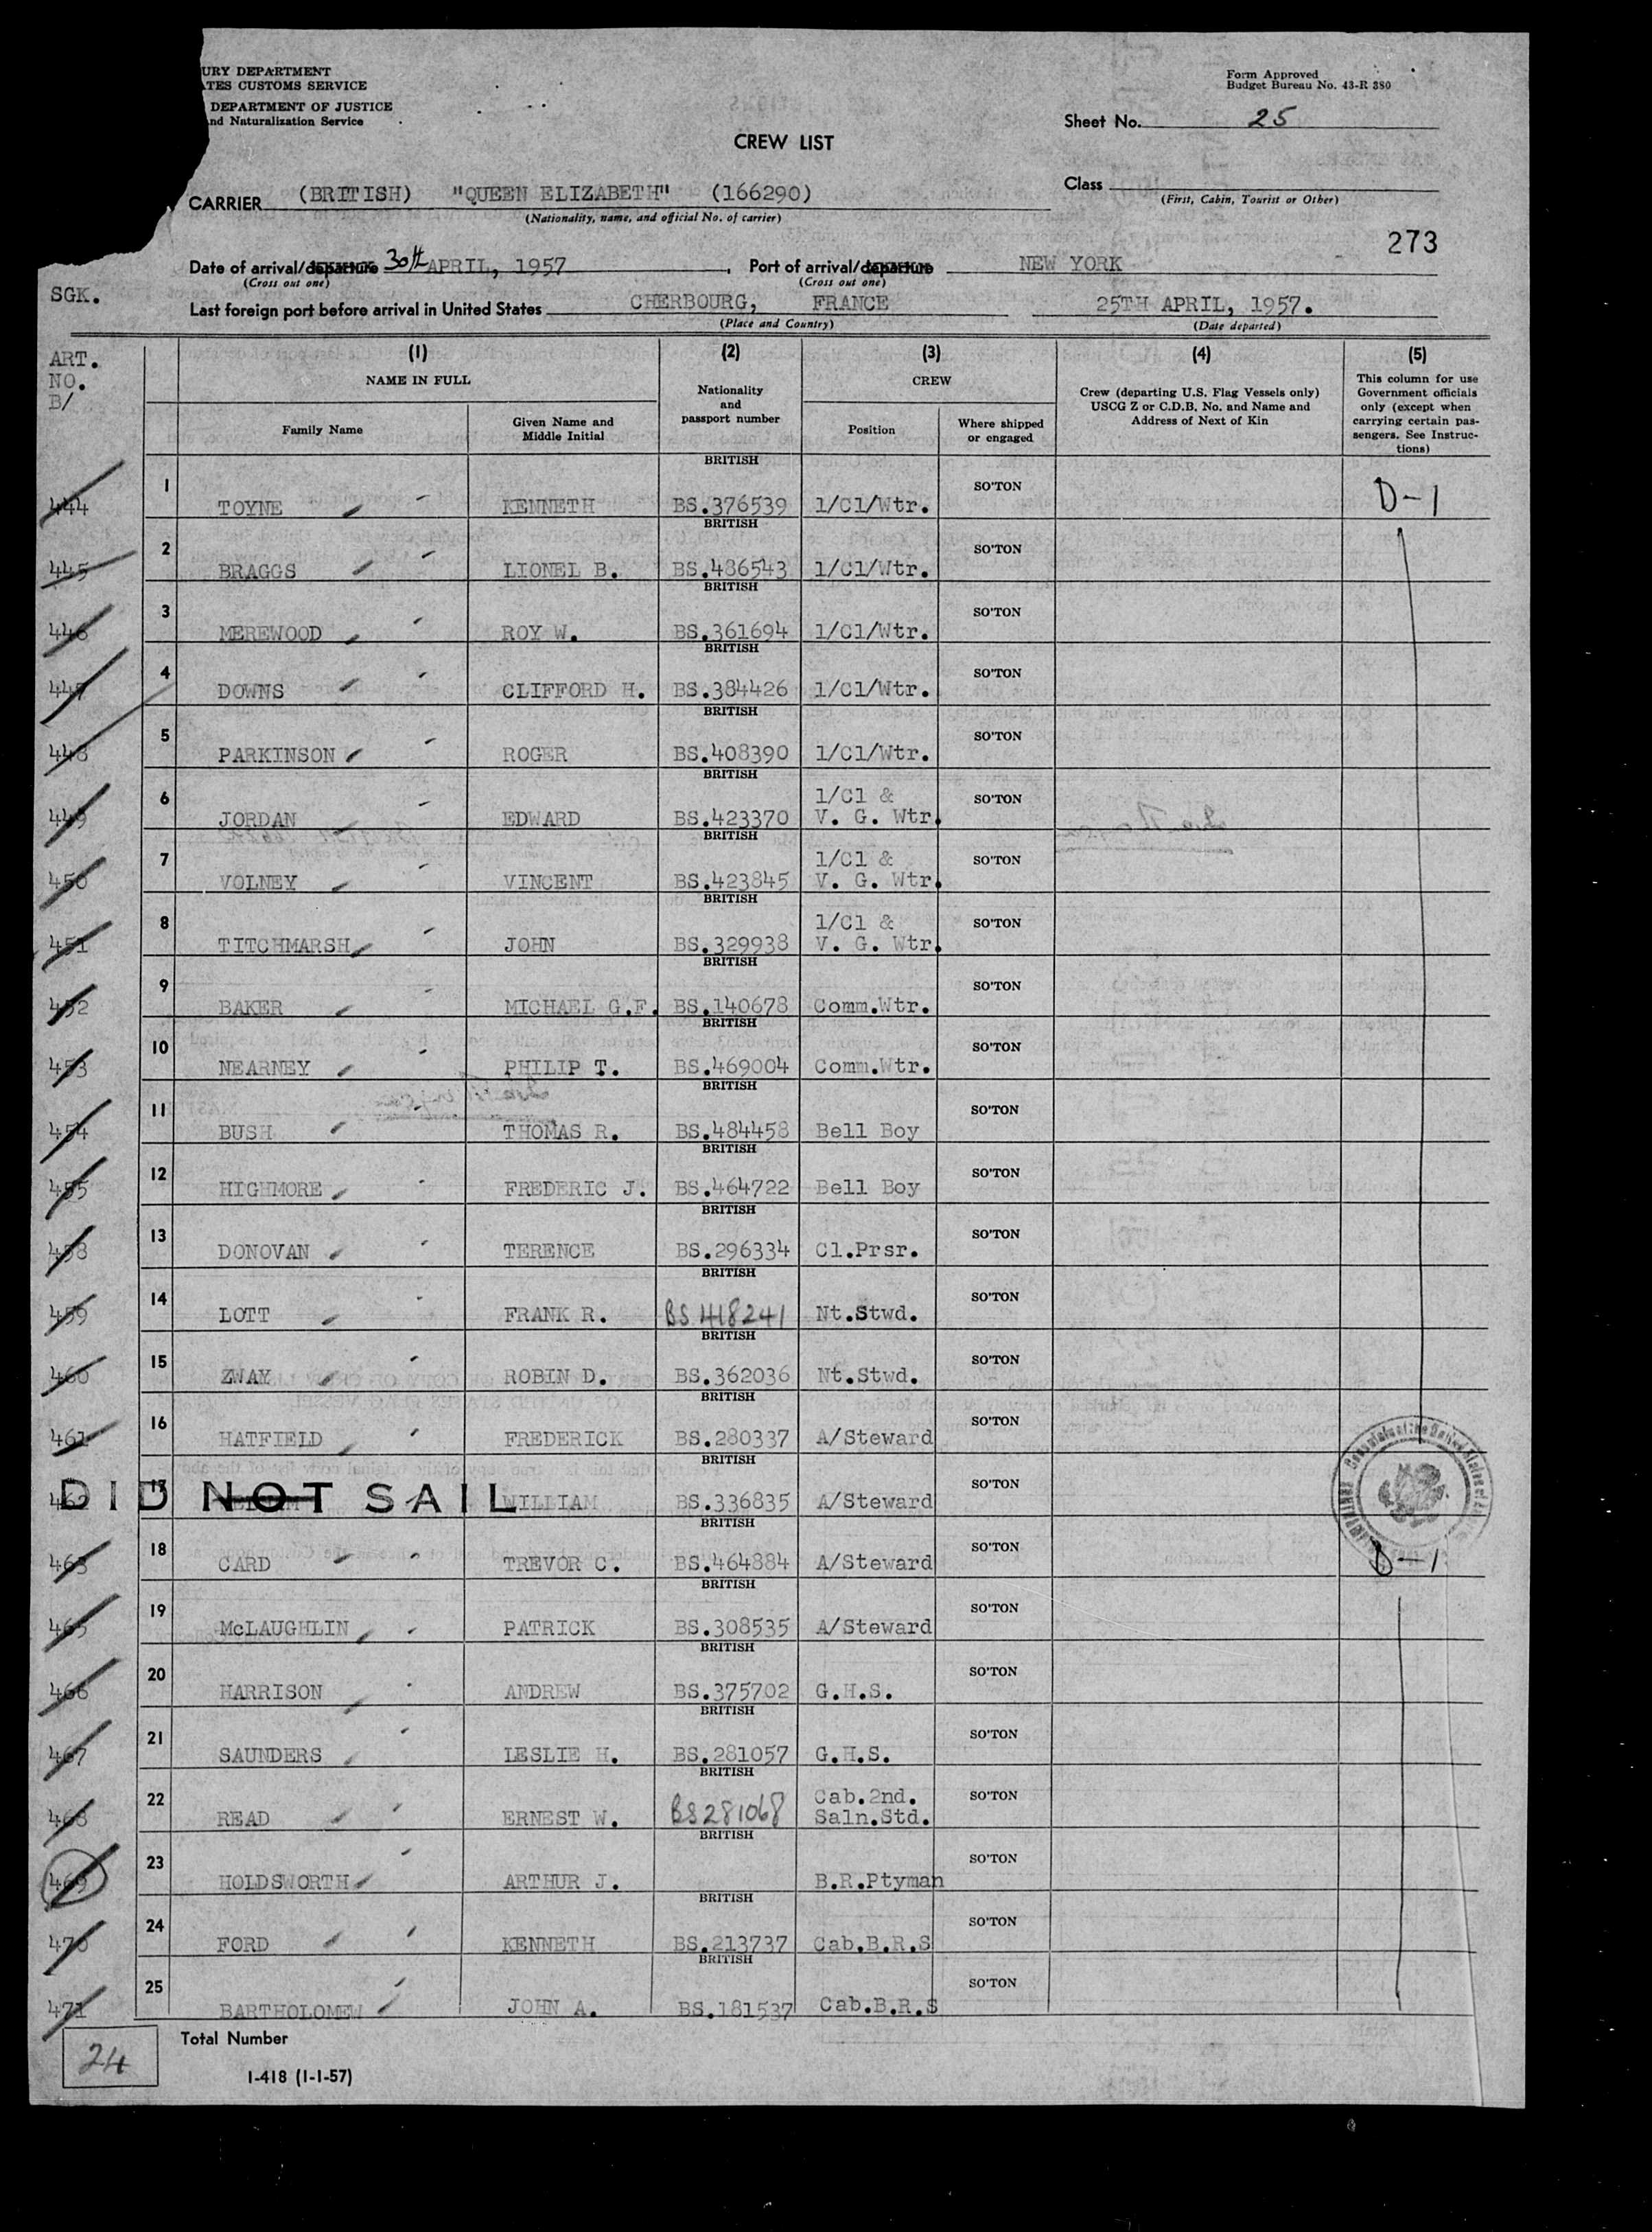 URY DEPARTMENT
ATES CUSTOMS SERVICE
DEPARTMENT OF JUSTICE
nd Naturalization Service
Form Approved
Budget Bureau No. 43-R 380
Sheet No. 25
CREW LIST
Class
(First, Cabin, Tourist or Other)
CARRIER (BRITISH) "QUEEN ELIZABETH" (166290)
(Nationality, name, and official No. of carrier)
273
Date of arrival/departure 30th APRIL, 1957, Port of arrival/departure NEW YORK
(Cross out one) (Cross out one)
SGK.
Last foreign port before arrival in United States CHERBOURG, FRANCE 25TH APRIL, 1957.
(Place and Country) (Date departed)
ART. NO. B/
(1) (2) (3) (4) (5)
NAME IN FULL
Family Name
Given Name and Middle Initial
Nationality and passport number
CREW
Position
Where shipped or engaged
Crew (departing U.S. Flag Vessels only) USCG Z or C.D.B. No. and Name and Address of Next of Kin
This column for use Government officials only (except when carrying certain passengers. See Instructions)
444 1 TOYNE KENNETH BRITISH BS.376539 1/Cl/Wtr. SO'TON D-1
445 2 BRAGGS LIONEL B. BRITISH BS.486543 1/Cl/Wtr. SO'TON
446 3 MEREWOOD ROY W. BRITISH BS.361694 1/Cl/Wtr. SO'TON
447 4 DOWNS CLIFFORD H. BRITISH BS.384426 1/Cl/Wtr. SO'TON
448 5 PARKINSON ROGER BRITISH BS.408390 1/Cl/Wtr. SO'TON
449 6 JORDAN EDWARD BRITISH BS.423370 1/Cl & V. G. Wtr. SO'TON
450 7 VOLNEY VINCENT BRITISH BS.423845 1/Cl & V. G. Wtr. SO'TON
451 8 TITCHMARSH JOHN BRITISH BS.329938 1/Cl & V. G. Wtr. SO'TON
452 9 BAKER MICHAEL G.F. BRITISH BS.140678 Comm.Wtr. SO'TON
453 10 NEARNEY PHILIP T. BRITISH BS.469004 Comm.Wtr. SO'TON
454 11 BUSH THOMAS R. BRITISH BS.484458 Bell Boy SO'TON
455 12 HIGHMORE FREDERIC J. BRITISH BS.464722 Bell Boy SO'TON
458 13 DONOVAN TERENCE BRITISH BS.296334 Cl.Prsr. SO'TON
459 14 LOTT FRANK R. BRITISH BS 418241 Nt.Stwd. SO'TON
460 15 ZWAY ROBIN D. BRITISH BS.362036 Nt.Stwd. SO'TON
461 16 HATFIELD FREDERICK BRITISH BS.280337 A/Steward SO'TON
462 17 DID NOT SAIL WILLIAM BRITISH BS.336835 A/Steward SO'TON
463 18 CARD TREVOR C. BRITISH BS.464884 A/Steward SO'TON D-1
465 19 McLAUGHLIN PATRICK BRITISH BS.308535 A/Steward SO'TON
466 20 HARRISON ANDREW BRITISH BS.375702 G.H.S. SO'TON
467 21 SAUNDERS LESLIE H. BRITISH BS.281057 G.H.S. SO'TON
468 22 READ ERNEST W. BRITISH BS281068 Cab.2nd. Saln.Std. SO'TON
469 23 HOLDSWORTH ARTHUR J. BRITISH B.R.Ptyman SO'TON
470 24 FORD KENNETH BRITISH BS.213737 Cab.B.R.S SO'TON
471 25 BARTHOLOMEW JOHN A. BRITISH BS.181537 Cab.B.R.S SO'TON
24 Total Number
I-418 (1-1-57)